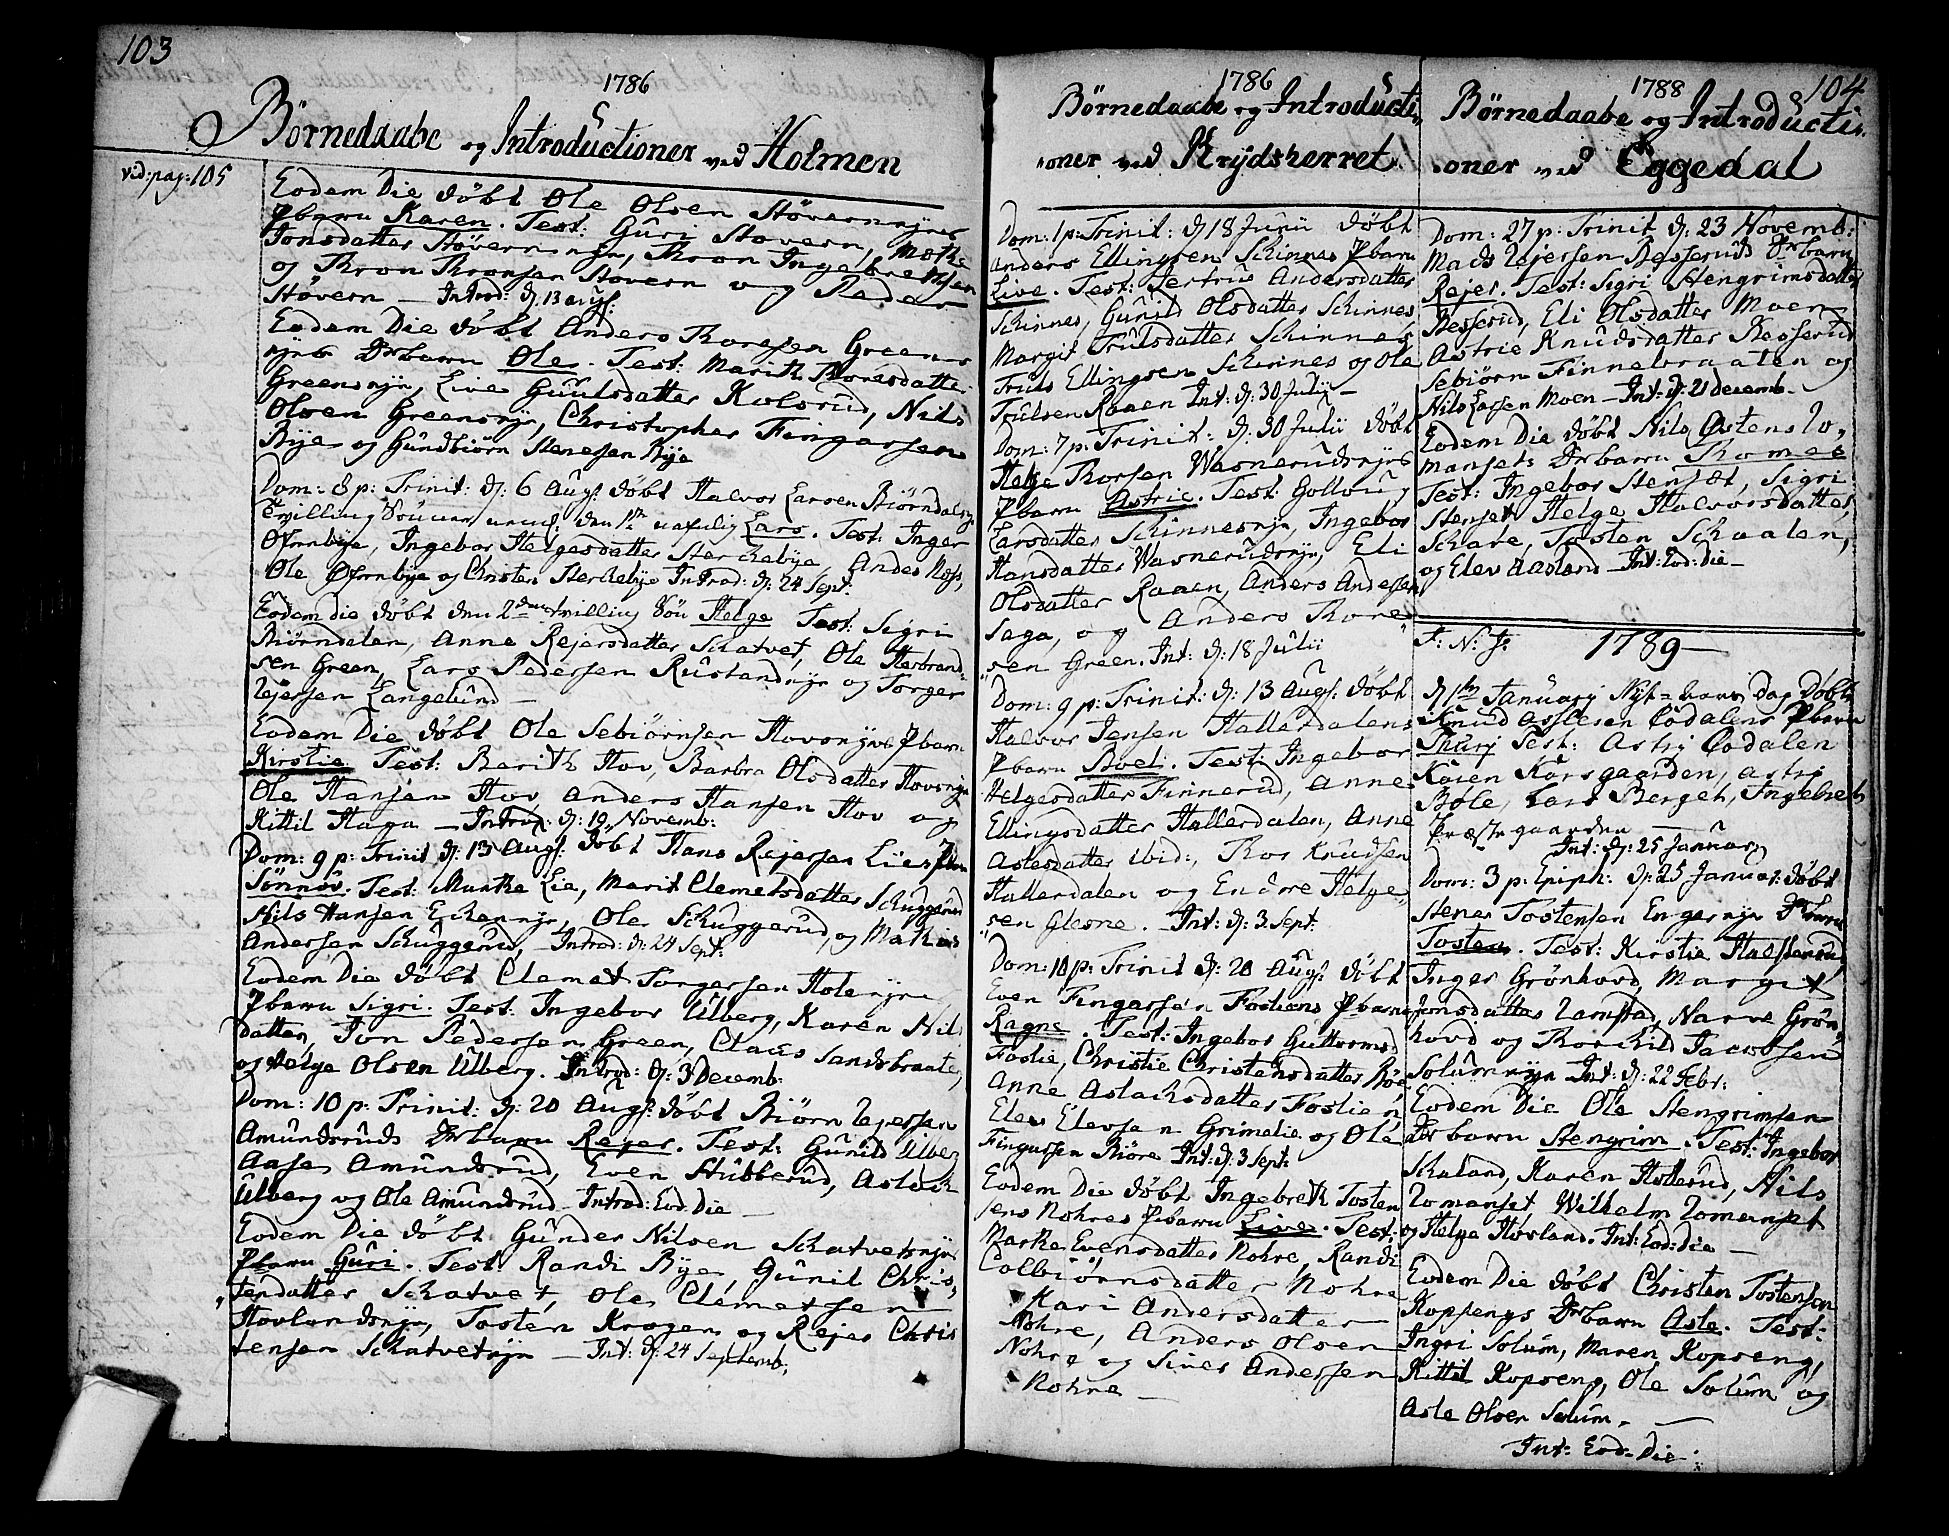 103
1786
Börnedaabe og Introductioner ved Holmen
vid: pag: 105
Eodem Die döbt Ole Olsen Stövernnyes
Pbarn Karen. Test: Guri Stovern, Marthe
Jonsdatter Stövernnye, Thron Ingebrethsen
og Thron Thronsen Stovern og Peder
Stövern – Introd: d: 13 aug:
Eodem Die döbt Anders Thoresen Greens
nye Drbarn Ole. Test: Marith Thoresdatter
Greensnye, Live Gunlsdatter Kolsrud, Nils
Olsen Greensnye, Christopher Fingarsen
Bye og Gundbiörn Stenesen Bye
Dom: 8 p: Trinit: d: 6 Aug: döbt Halvor Larsen Biörndals
Tvilling Sönner, den 1ste Lars. Test: Inger
Öfvrnbye, Ingebor Helgesdatter Sterchebye, Andes
Ole Öfvrnbye og Christen Sterchebye Introd: d: 24 Sept:
Eodem die döbt den 2den tvilling Sön Helge Test: Sigri
Biörndalen, Anne Rejersdatter Schatvet, Ole Herbrand-
sen Green, Lars Pedersen Rustandnye og Torger
Rejersen Langelund –
Eodem Die döbt Ole Sebiörnsen Hovsnyes Pbarn
Kirstie Test: Barith Hov, Barbra Olsdatter Hovsnye
Ole Hansen Hov, Anders Hansen Hov og
Kittil Haga – Introd: d: 19 Novemb:
Dom: 9 p: Trinit d: 13 Aug: döbt Hans Rejersen Lies Pbarn
Sönnöv. Test: Marthe Lie, Marit Clemetsdatter Schuggerud
Nils Hansen Echernnye, Ole Schuggerud, og Mathias
Andersen Schuggerud, – Introd: d: 24 Sept:
Eodem Die döbt Clemet Torgersen Holenye
Pbarn Sigri. Test: Ingebor Ulberg, Karen Nils
datter, Jon Pedersen Green, Claus Sandsbraate,
og Helge Olsen Ulberg. Introd: d: 3 Decemb:
Dom: 10 p: Trinit: d: 20 Aug: döbt Biörn Rejersen
Amundsruds Drbarn Rejer. Test: Gunild Ulberg
Aase Amundsrud, Even Stubberud, Aslach
Ulberg og Ole Amundsrud – Introd: Eod: Die –
Eodem Die döbt Gunder Nilsen Schatvetsnye
Pbarn Guri. Test Randi Bye, Gunil Chris
tendatter Schatvet, Ole Clemetsen
Hovlandsnye, Tosten Krogen og Rejer Chris
tensen Schatvetnye – Int: d: 24 Septemb:
1786
Börnedaabe og Introducti-
oner ved Krydsherret
Dom: 1 p: Trinit: d 18 Junii döbt
Anders Ellingsen Schinnes Pbarn
Live. Test: Jertrus Andersdatter
Schinnes, Gunild Olsdatter Schinnes,
Margit Trulsdatter Schinnes,
Truls Ellingsen Schinnes og Ole
Trulsen Raaen Int: d: 30 Julij –
Dom: 7 p: Trinit: d: 30 Julii döbt
Helge Thorsen Wasnerudsnyes
Pbarn Astrie. Test: Gollou
Larsdatter Schinnesnye, Ingebor
Hansdatter Wasnerudsnye, Eli
Olsdatter Raaen, Anders Andersen
Saga, og Anders Thore
sen Green. Int: d: 18 Julii
Dom: 9 p: Trinit: d: 13 Aug: döbt
Halvor Jensen Hallerdalens
Pbarn Boel. Test: Ingebor
Helgesdatter Finnerud, Anne
Ellingsdatter Hallerdalen, Anne
Aslesdatter ibid:, Thor Knudsen
Hallerdalen og Endre Helge
sen Glesne. – Int: d: 3 Sept:
Dom: 10 p: Trinit d: 20 Aug: döbt
Even Fingarsen Fosliens Pbarn
Ragne. Test: Ingebor Guttormsd
Foslie, Christie Christensdatter Böre
Anne Aslachsdatter Foslien
Elev Elevsen Grimelie og Ole
Fingarsen Böre Int: d: 3 Sept:
Eodem Die döbt Ingebreth Tosten
sens Nohres Pbarn Live. Test:
Marthe Evensdatter Nohre, Randi
Colbiörnsdatter Nohre
Kari Andersdatter
Nohre, Anders Olsen
Nohre og Siver Andersen
Nohre –
1788 104
Börnedaabe og Introducti-
oner ved Eggedal
Dom: 27 p: Trinit d: 23 Novemb:
Mads Rejersen Besseruds Drbarn
Rejer. Test: Sigri Stengrimsdatter
Besserud, Eli Olsdatter Moen
Astrie Knudsdatter Besserud
Sebiörn Finnebraaten og
Nils Larsen Moen – Int: d: 21 decemb.
Eodem Die döbt Nils Östens Zo-
mansets Drbarn Thomes
Test: Ingebor Stenset, Sigri
Stenset, Helge Halvorsdatter
Schare, Tosten Schaalen,
og Elev Aasland – Int: Eod: Die –
I: N: J: 1789 –
d 1ste Januarj Nyt-aars Dag Döbt
Knud Aslesen Eodalens Pbarn
Thurj Test: Astrj Eodalen
Karen Korsgaarden, Astrj
Böle, Lars Berget, Ingebreth
Præstegaarden
Int: d: 25 Januar
Dom: 3 p: Epiph: d: 25 Januar: döbt
Stener Tostensen Engernye Drbarn
Tosten. Test: Kirstie Halstenrud,
Inger Grönhovd, Margit
Jonsdatter Ramstad, Narve Grön-
hovd og Thorkild Jacobsen
Solumnye Int: d: 22 Febr:
Eodem Die Ole Stengrimsen
Drbarn Stengrim. Test: Ingebor
Schaland, Karen Holterud, Nils
Zomanset Wilhelm Zomanset
og Helge Hovland. Int: Eod: Die –
Eodem Die döbt Christen Tostensen
Kopsengs Drbarn Asle. Test:
Ingri Solum, Maren Kopseng,
Kittil Kopseng, Ole Solum og
Asle Olsen Solum. –
Int: Eod: Die